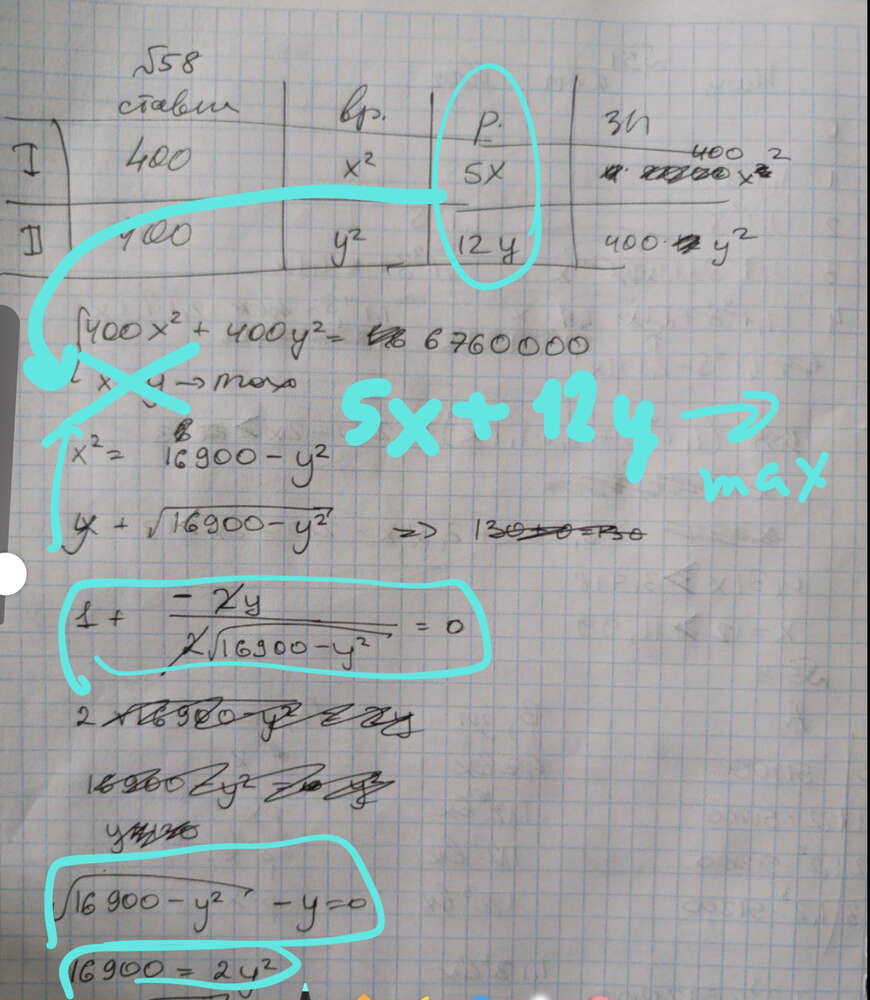 √58
ставки вр. р. зп
I 400 x² 5x 400 x²
II 400 y² 12y 400· y²
400x² + 400y² = 6760000
x y → max
5x + 12y → max
x² = 16900 - y²
y + √16900 - y² =>
1 + - 2y / 2√16900 - y² = 0
2
√16900 - y² - y = 0
16900 = 2y²